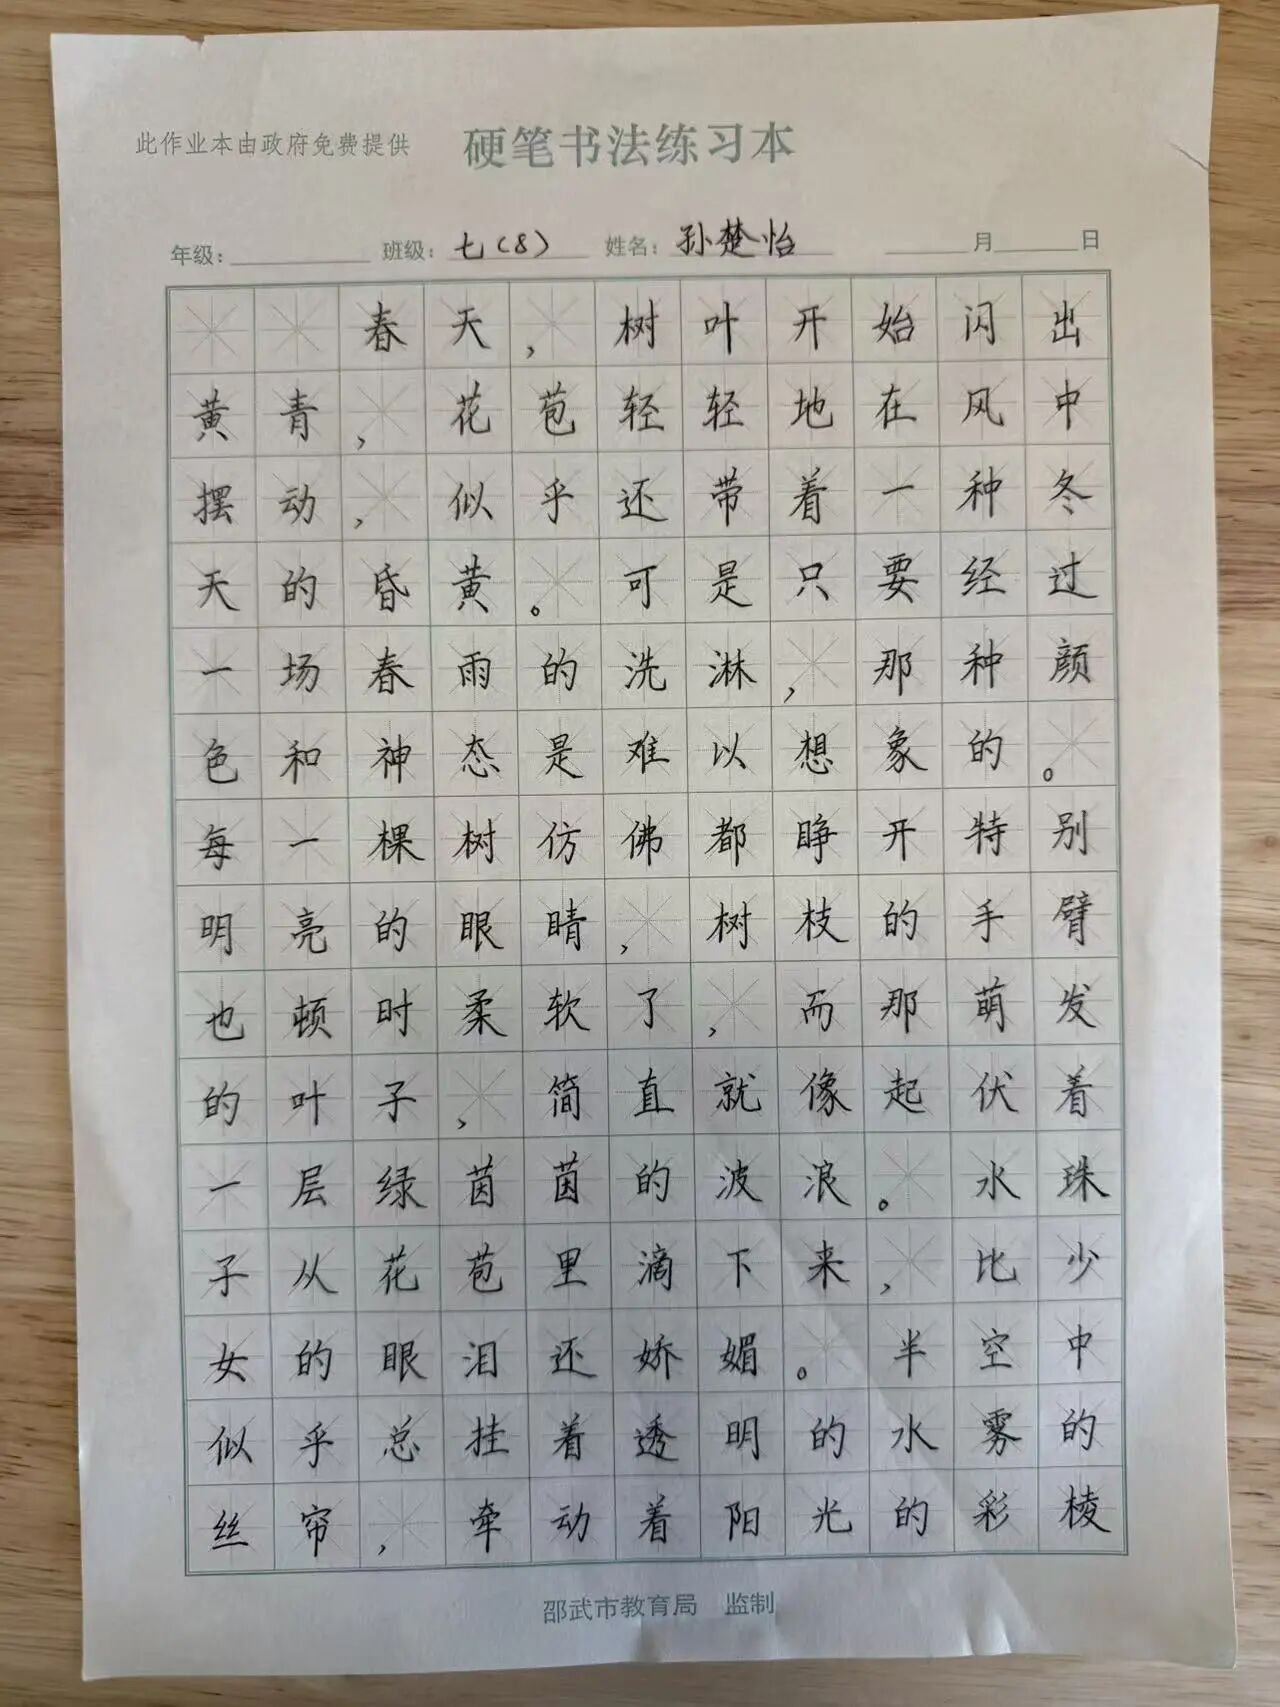 此作业本由政府免费提供 硬笔书法练习本
年级: 班级:七(8) 姓名:孙楚怡 月 日
春天,树叶开始闪出
黄青,花苞轻轻地在风中
摆动,似乎还带着一种冬
天的昏黄。可是只要经过
一场春雨的洗淋,那种颜
色和神态是难以想象的。
每一棵树仿佛都睁开特别
明亮的眼睛,树枝的手臂
也顿时柔软了,而那萌发
的叶子,简直就像起伏着
一层绿茵茵的波浪。水珠
子从花苞里滴下来,比少
女的眼泪还娇媚。半空中
似乎总挂着透明的水雾的
丝帘,牵动着阳光的彩棱
邵武市教育局 监制